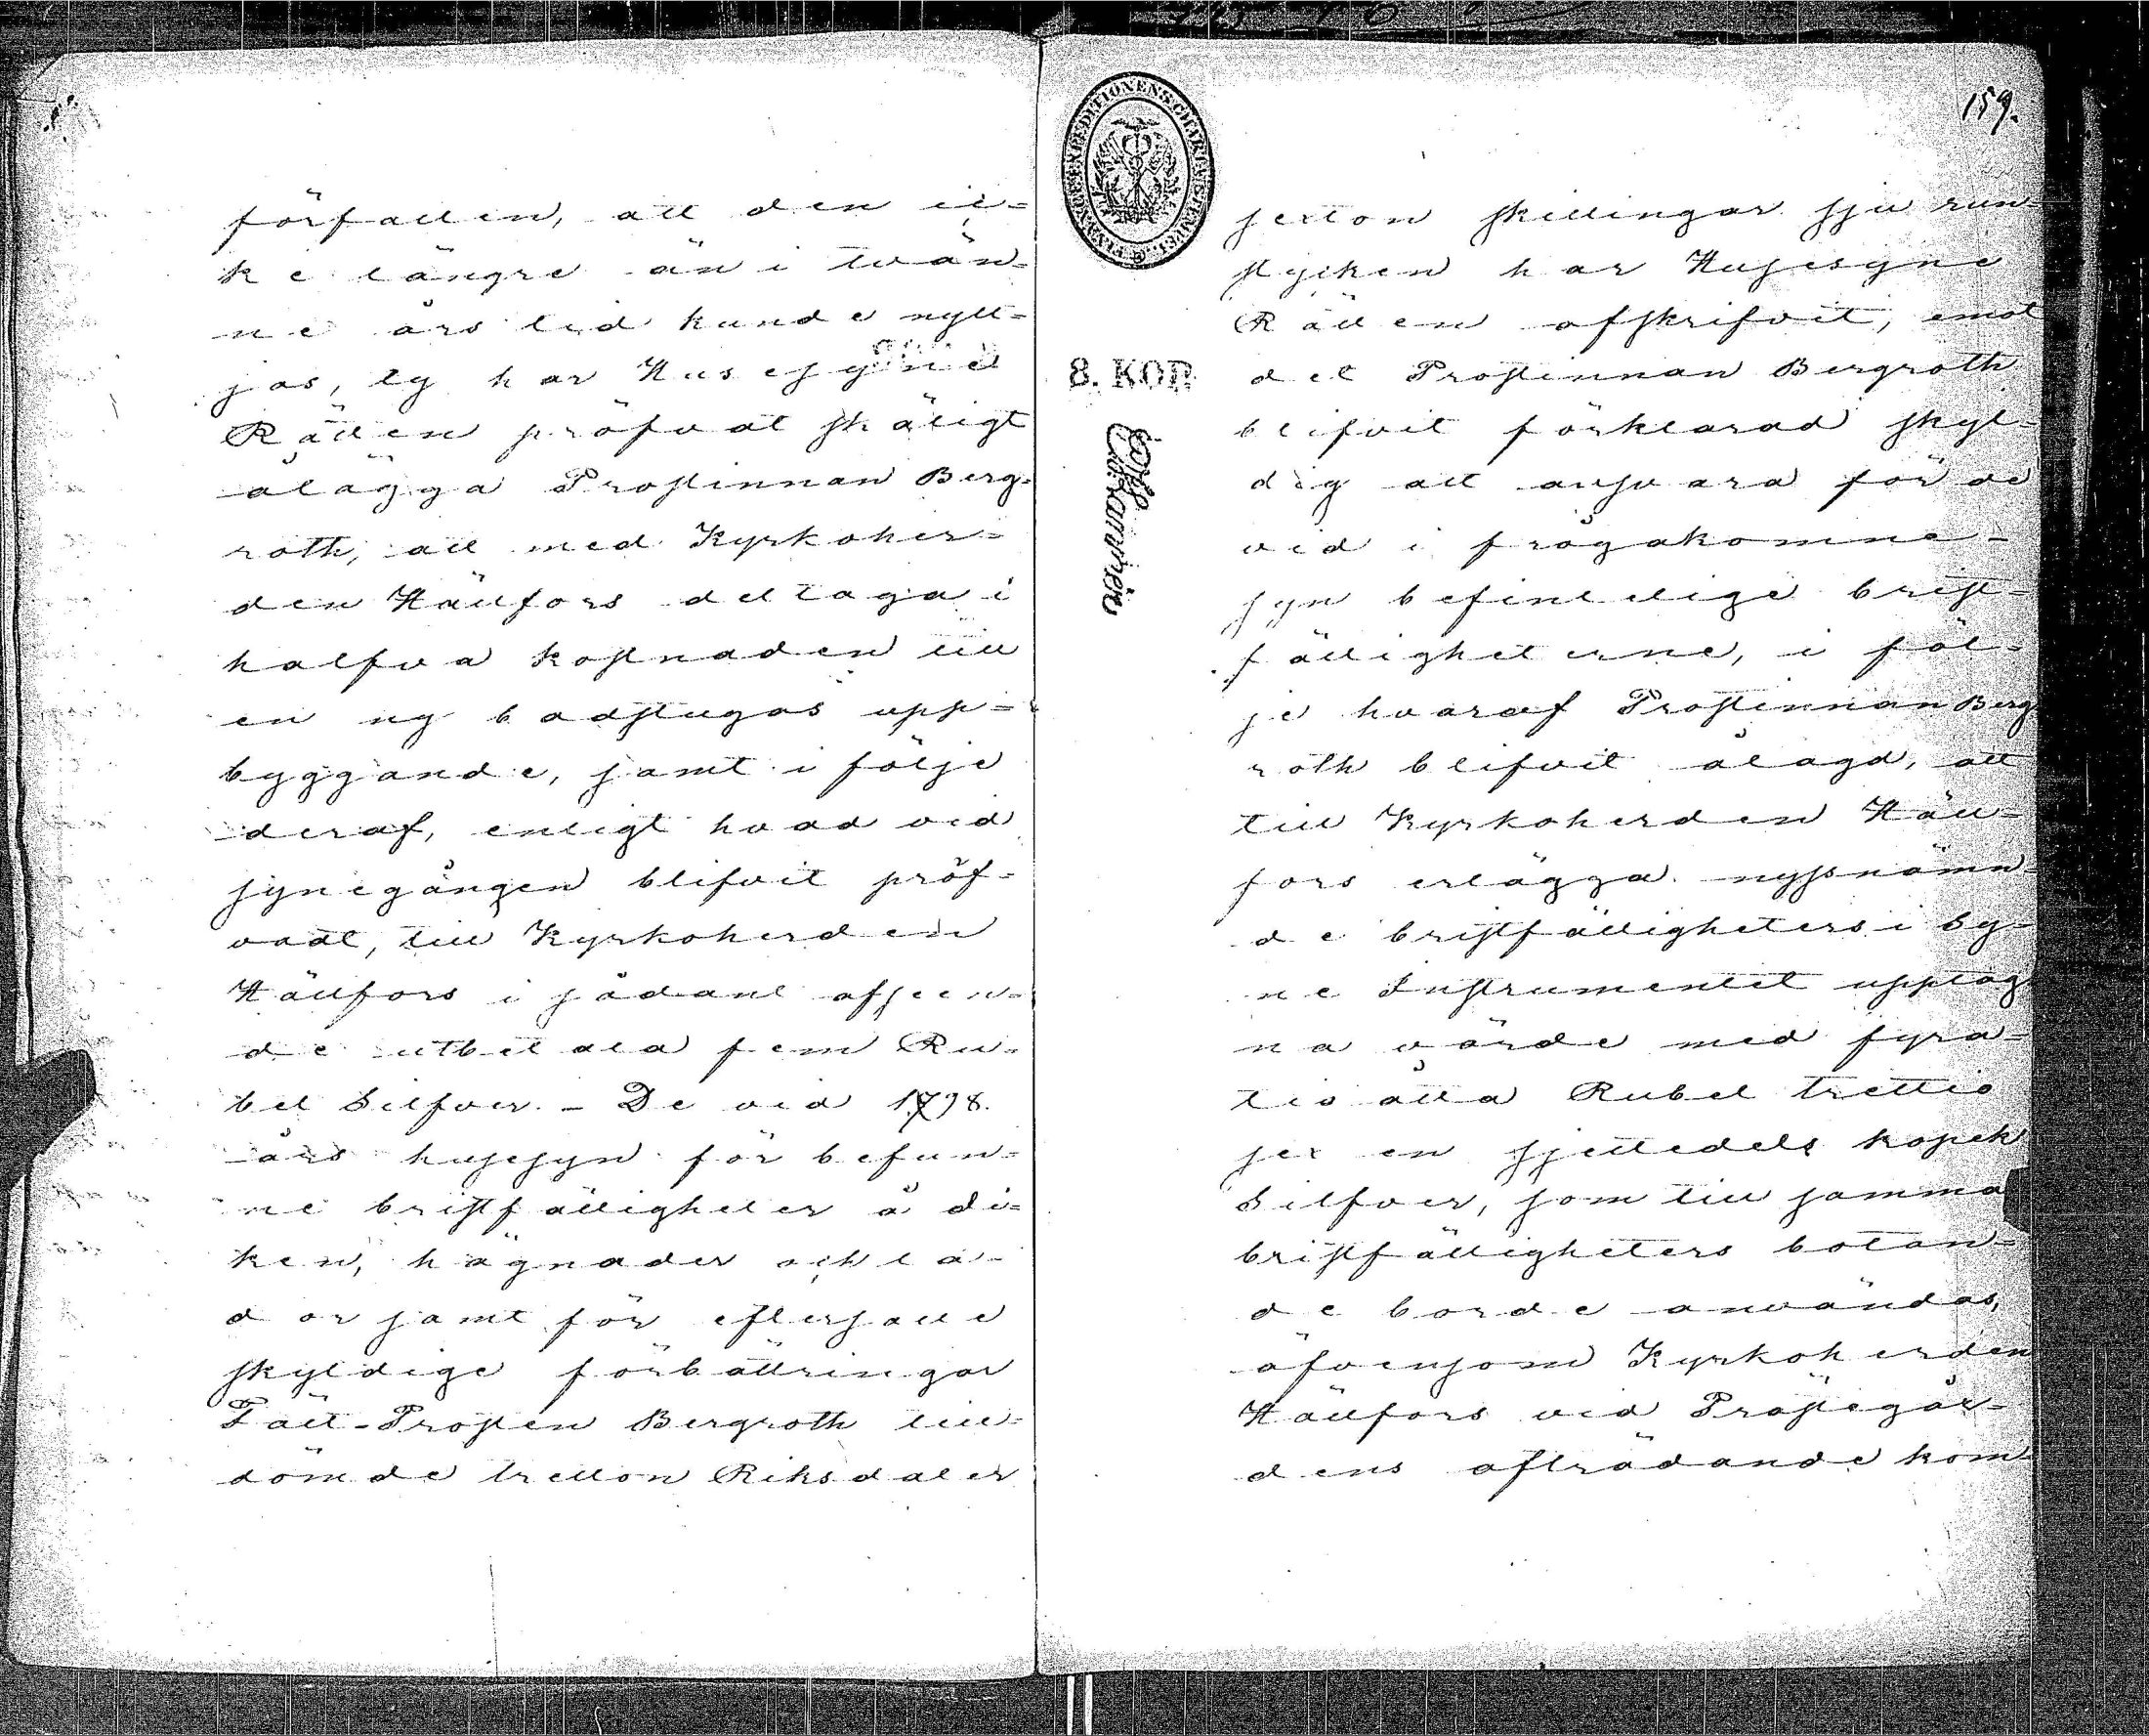 förfallen, att den ic-
ke längre än i tvän-
ne års tid kunde nytt-
jas, ty har Husesyne
Rätten pröfvat skäligt
ålägga Prostinnan Berg-
roth, att med Kyrkoher-
den Hällfors deltaga i
halfva kostnaden till
en ny badstugas upp-
byggande, samt i följe
deraf, enligt hvad vid
synegången blifvit pröf-
vadt, till Kyrkoherden
Hällfors i sådant afseen-
de utbetala fem Ru-
bel Silfver. - De vid 1798.
års husesyn för befun-
ne bristfälligheter å di-
ken, hägnader och la-
dor samt för eftersatte
skyldige förbättringar
Fält-Prosten Bergroth till-
dömde tretton Riksdaler
159.
8. KOP.
sexton skillingar sju run-
stycken har Husesyne
Rätten afskrifvit, emot
det Prostinnan Bergroth
blifvit förklarad skyl-
dig att ansvara för de
vid i frågakomne
syn befintelige brist-
fälligheterne, i föl-
je hvaraf Prostinnan Berg
roth blifvit ålagd, att
till Kyrkoherden Häll-
fors erlägga nyssnämn-
de bristfälligheters i Sy-
ne Instrumentet upptag-
na värde med fyra-
tio åtta Rubel trettio
sex en sjettedels kopek
Silfver, som till samma
bristfälligheters botan-
de borde användas,
äfvensom Kyrkoherden
Hällfors vid Prästegår-
dens afträdande kom-